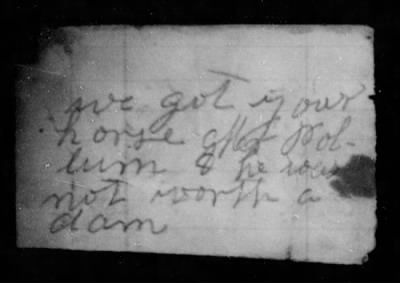 we got your
horse off Pol-
lum & he was
not worth a
dam